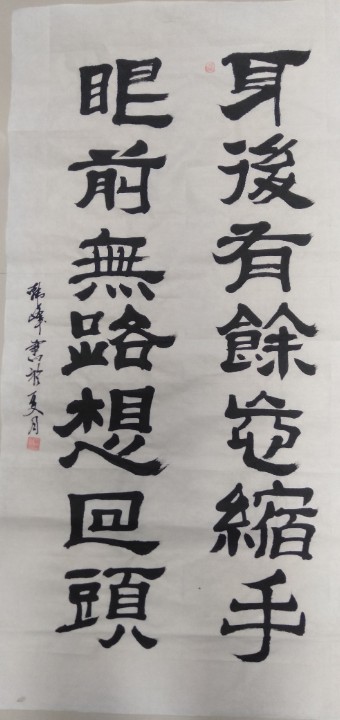 身後有餘忘縮手
眼前無路想回頭
峰書於夏月